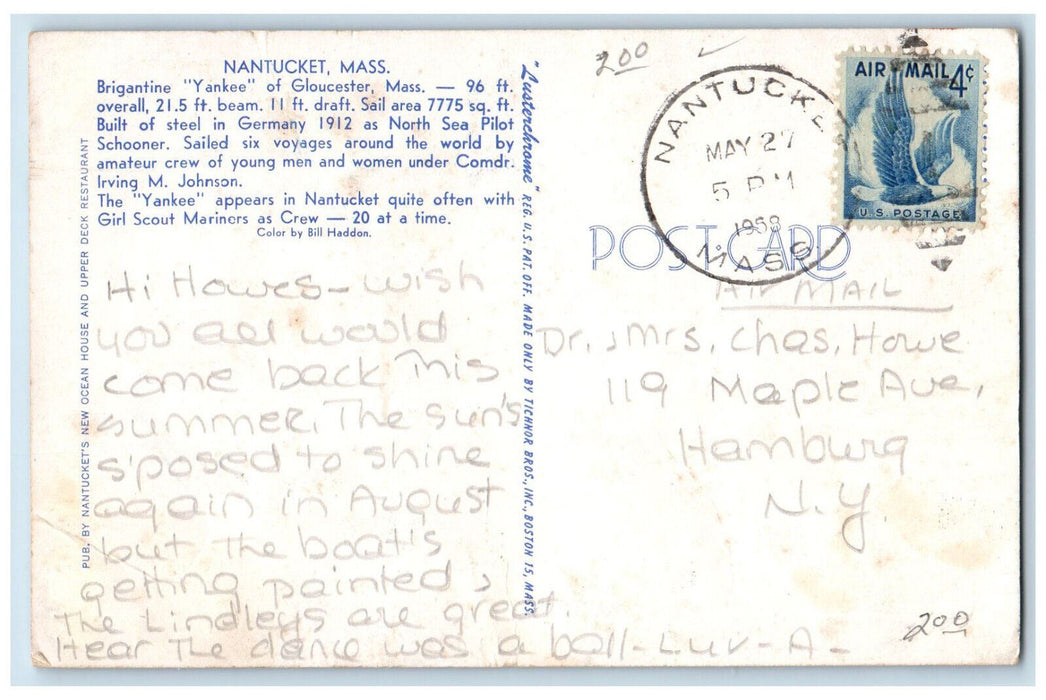 NANTUCKET, MASS.
Brigantine "Yankee" of Gloucester, Mass. — 96 ft.
overall, 21.5 ft. beam. 11 ft. draft. Sail area 7775 sq. ft.
Built of steel in Germany 1912 as North Sea Pilot
Schooner. Sailed six voyages around the world by
amateur crew of young men and women under Comdr.
Irving M. Johnson.
The "Yankee" appears in Nantucket quite often with
Girl Scout Mariners as Crew — 20 at a time.
Color by Bill Haddon.
PUB. BY NANTUCKET'S NEW OCEAN HOUSE AND UPPER DECK RESTAURANT
Hi Howes - wish
you all would
come back this
summer. The sun's
s'posed to shine
again in August
but the boat's
getting painted,
The Lindleys are great.
Hear the dance was a ball - Luv - A -
"Lusterchrome" REG. U.S. PAT. OFF. MADE ONLY BY TICHNOR BROS., INC., BOSTON 15, MASS.
2.00
NANTUCKE
MAY 27
5 PM
1958
MASS
AIR MAIL 4¢
U.S. POSTAGE
POST CARD
AIR MAIL
Dr. & Mrs. Chas. Howe
119 Maple Ave,
Hamburg
N.Y.
2.00